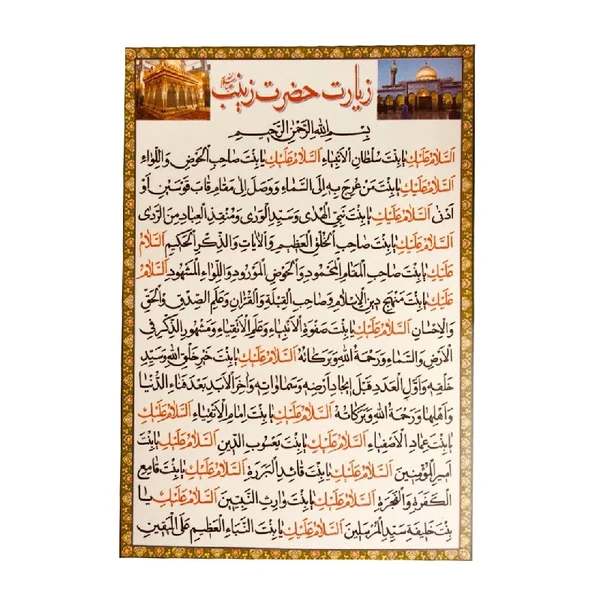 زیارت حضرت زینب
بِسْمِ اللهِ الرَّحْمٰنِ الرَّحیمِ
اَلسَّلامُ عَلَیْكِ یا بِنْتَ سُلْطانِ الْاَنْبِیاءِ اَلسَّلامُ عَلَیْكِ یا بِنْتَ صاحِبِ الْحَوْضِ وَاللِّواءِ
اَلسَّلامُ عَلَیْكِ یا بِنْتَ مَنْ عُرِجَ بِهِ اِلَی السَّماءِ وَوُصِلَ اِلی مَقامِ قابَ قَوْسَیْنِ اَوْ
اَدْنی اَلسَّلامُ عَلَیْكِ یا بِنْتَ نَبِیِّ الْهُدی وَسَیِّدِ الْوَری وَمُنْقِذِ الْعِبادِ مِنَ الرَّدی
اَلسَّلامُ عَلَیْكِ یا بِنْتَ صاحِبِ الْخُلُقِ الْعَظیمِ وَالْایاتِ وَالذِّکْرِ الْحَکیمِ اَلسَّلامُ
عَلَیْكِ یا بِنْتَ صاحِبِ الْمَقامِ الْمَحْمُودِ وَالْحَوْضِ الْمَوْرُودِ وَاللِّواءِ الْمَشْهُودِ اَلسَّلامُ
عَلَیْكِ یا بِنْتَ مَنْهَجِ دینِ الْاِسْلامِ وَصاحِبِ الْقِبْلَةِ وَالْقُرْانِ وَعَلَمِ الصِّدْقِ وَالْحَقِّ
وَالْاِحْسانِ اَلسَّلامُ عَلَیْكِ یا بِنْتَ صَفْوَةِ الْاَنْبِیاءِ وَعَلَمِ الْاَتْقِیاءِ وَمَشْهُورِ الذِّکْرِ فِی
الْاَرْضِ وَالسَّماءِ وَرَحْمَةُ اللهِ وَبَرَکاتُهُ اَلسَّلامُ عَلَیْكِ یا بِنْتَ خَیْرِ خَلْقِ اللهِ وَسَیِّدِ
خَلْقِهِ وَاَوَّلِ الْعَدَدِ قَبْلَ ایجادِ اَرْضِهِ وَسَمٰواتِهِ وَاخِرِ الْاَبَدِ بَعْدَ فَناءِ الدُّنْیا
وَاَهْلِها وَرَحْمَةُ اللهِ وَبَرَکاتُهُ اَلسَّلامُ عَلَیْكِ یا بِنْتَ اِمامِ الْاَتْقِیاءِ اَلسَّلامُ عَلَیْكِ
یا بِنْتَ عِمادِ الْاَصْفِیاءِ اَلسَّلامُ عَلَیْكِ یا بِنْتَ یَعْسُوبِ الدّینِ اَلسَّلامُ عَلَیْكِ یا بِنْتَ
اَمیرِ الْمُؤْمِنینَ اَلسَّلامُ عَلَیْكِ یا بِنْتَ قائِدِ الْبَرَرَةِ اَلسَّلامُ عَلَیْكِ یا بِنْتَ قامِعِ
الْکَفَرَةِ وَالْفَجَرَةِ اَلسَّلامُ عَلَیْكِ یا بِنْتَ وارِثِ النَّبِیّینَ اَلسَّلامُ عَلَیْكِ یا
بِنْتَ خَلیفَةِ سَیِّدِ الْمُرْسَلینَ اَلسَّلامُ عَلَیْكِ یا بِنْتَ النَّبَاءِ الْعَظیمِ عَلَی الْیَقینِ